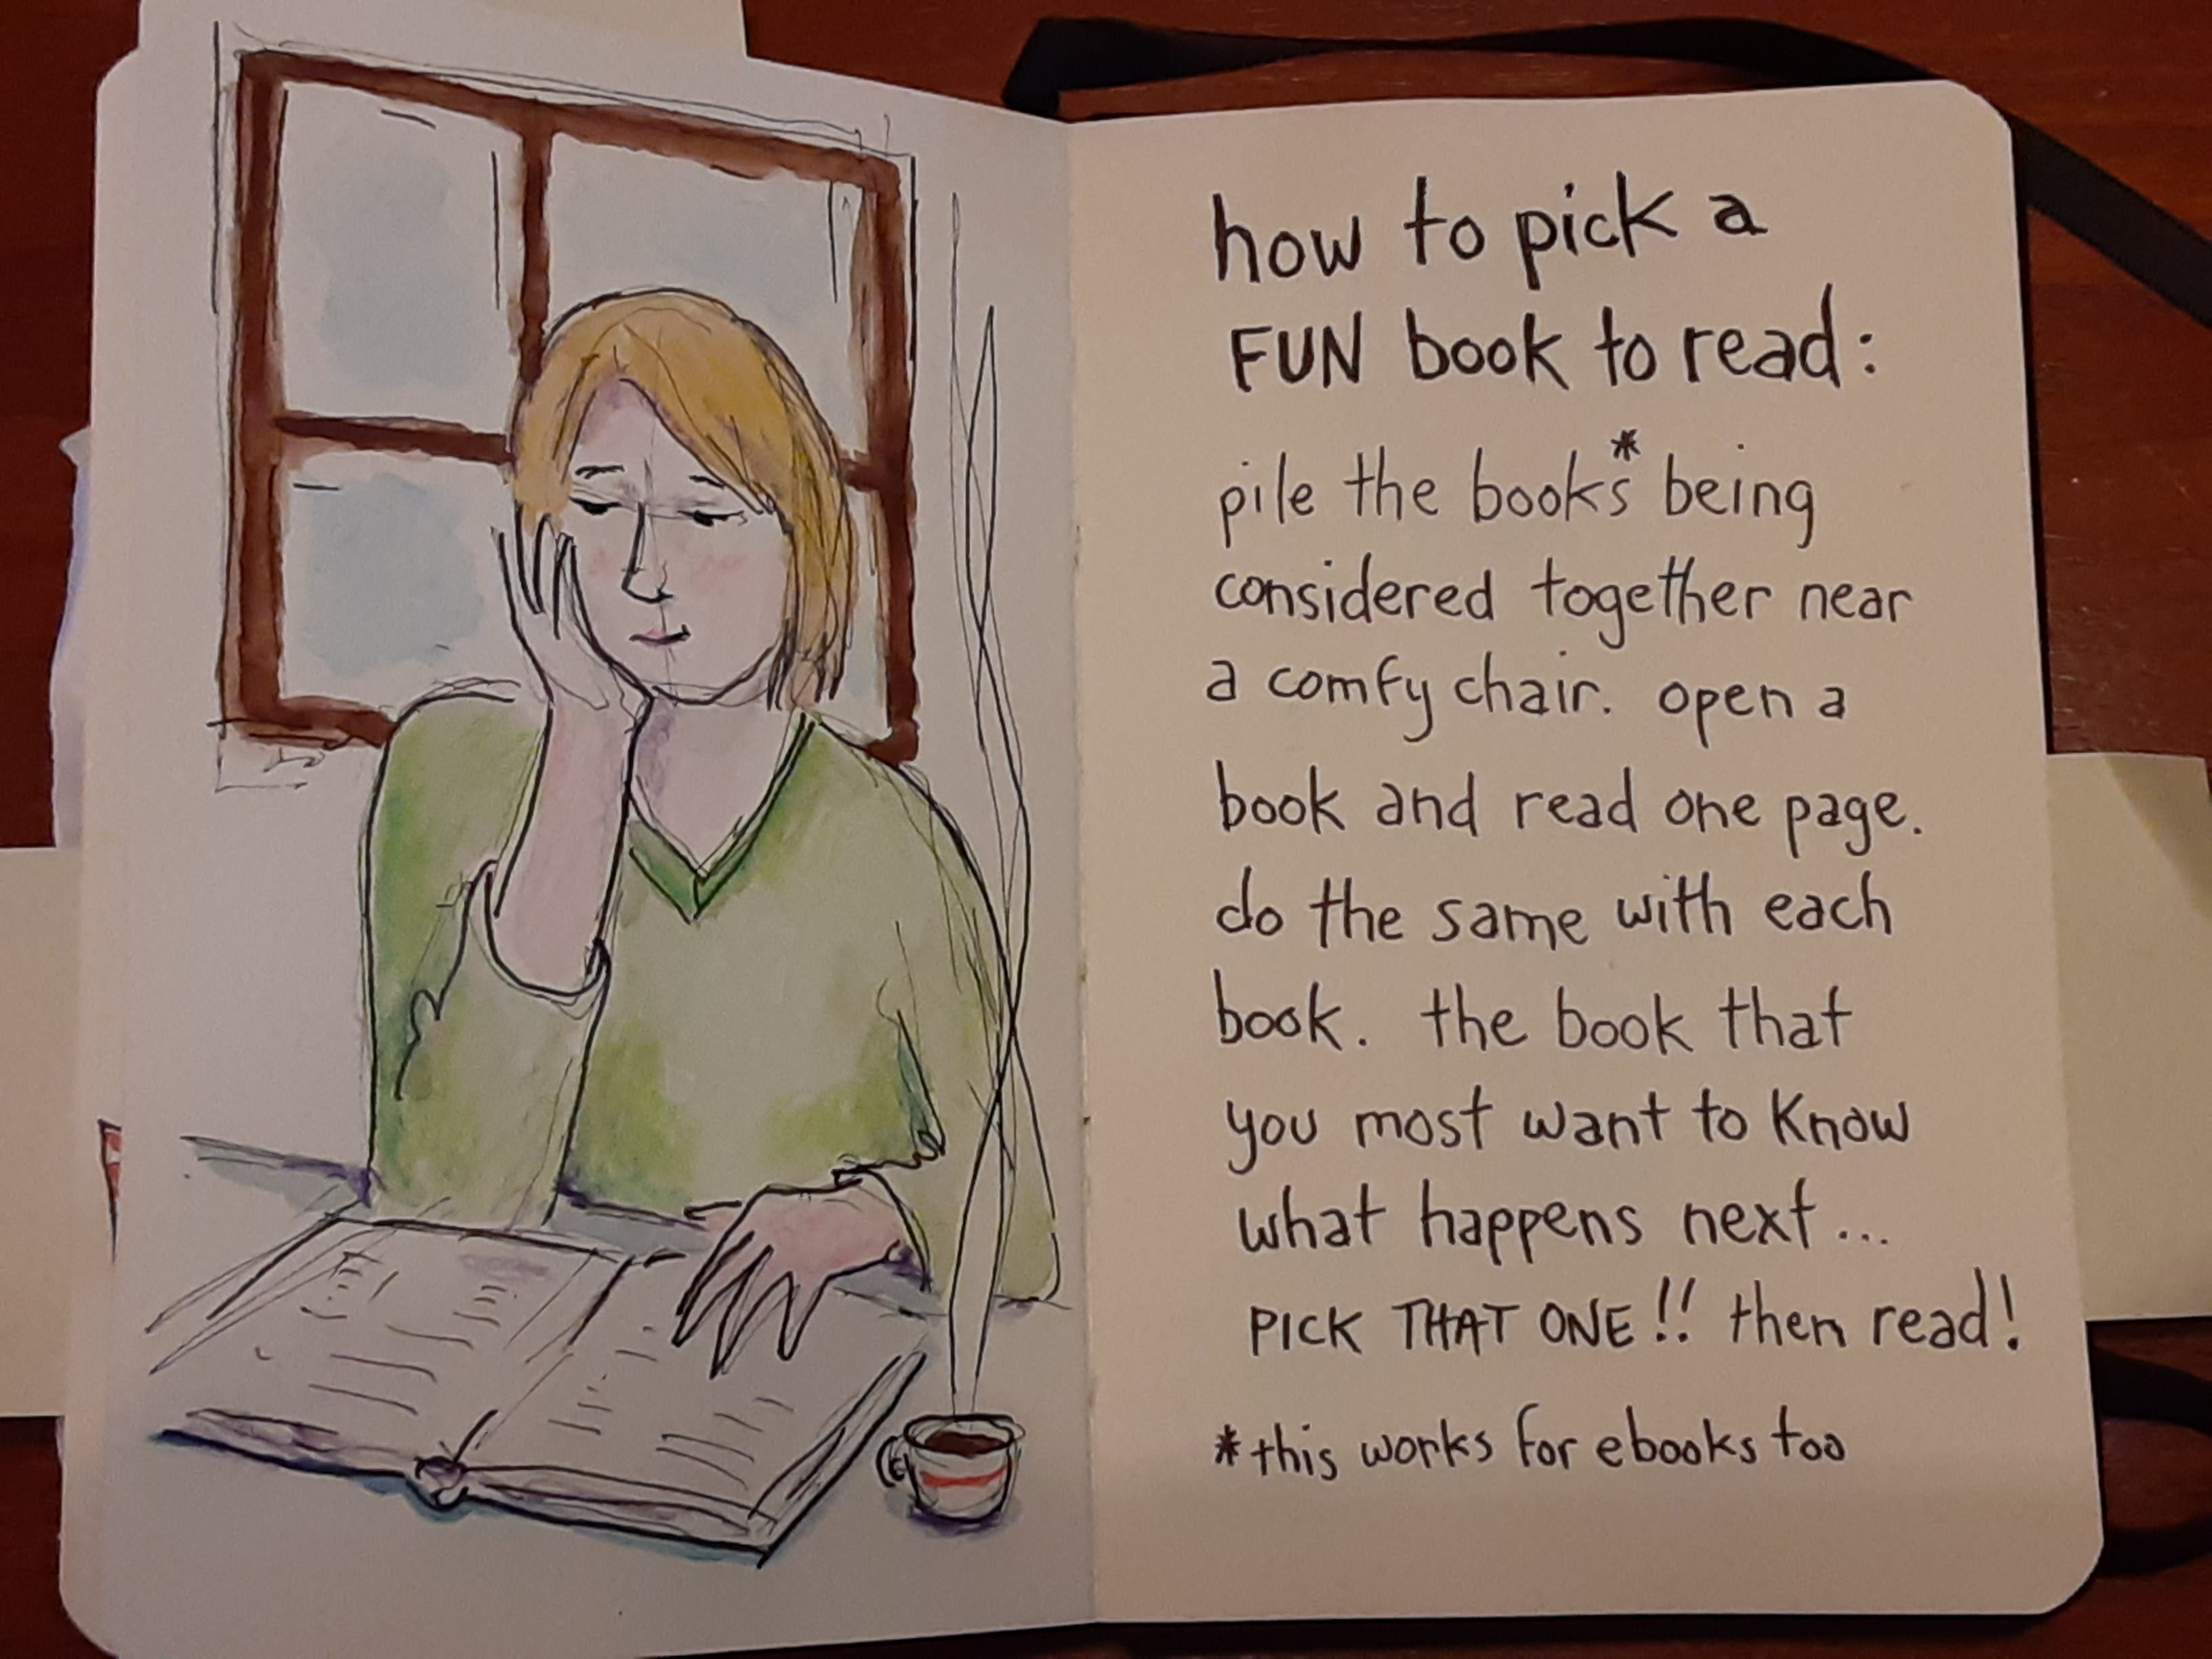 how to pick a
FUN book to read:
pile the books* being
considered together near
a comfy chair. open a
book and read one page.
do the same with each
book. the book that
you most want to know
what happens next...
PICK THAT ONE!! then read!
*this works for ebooks too